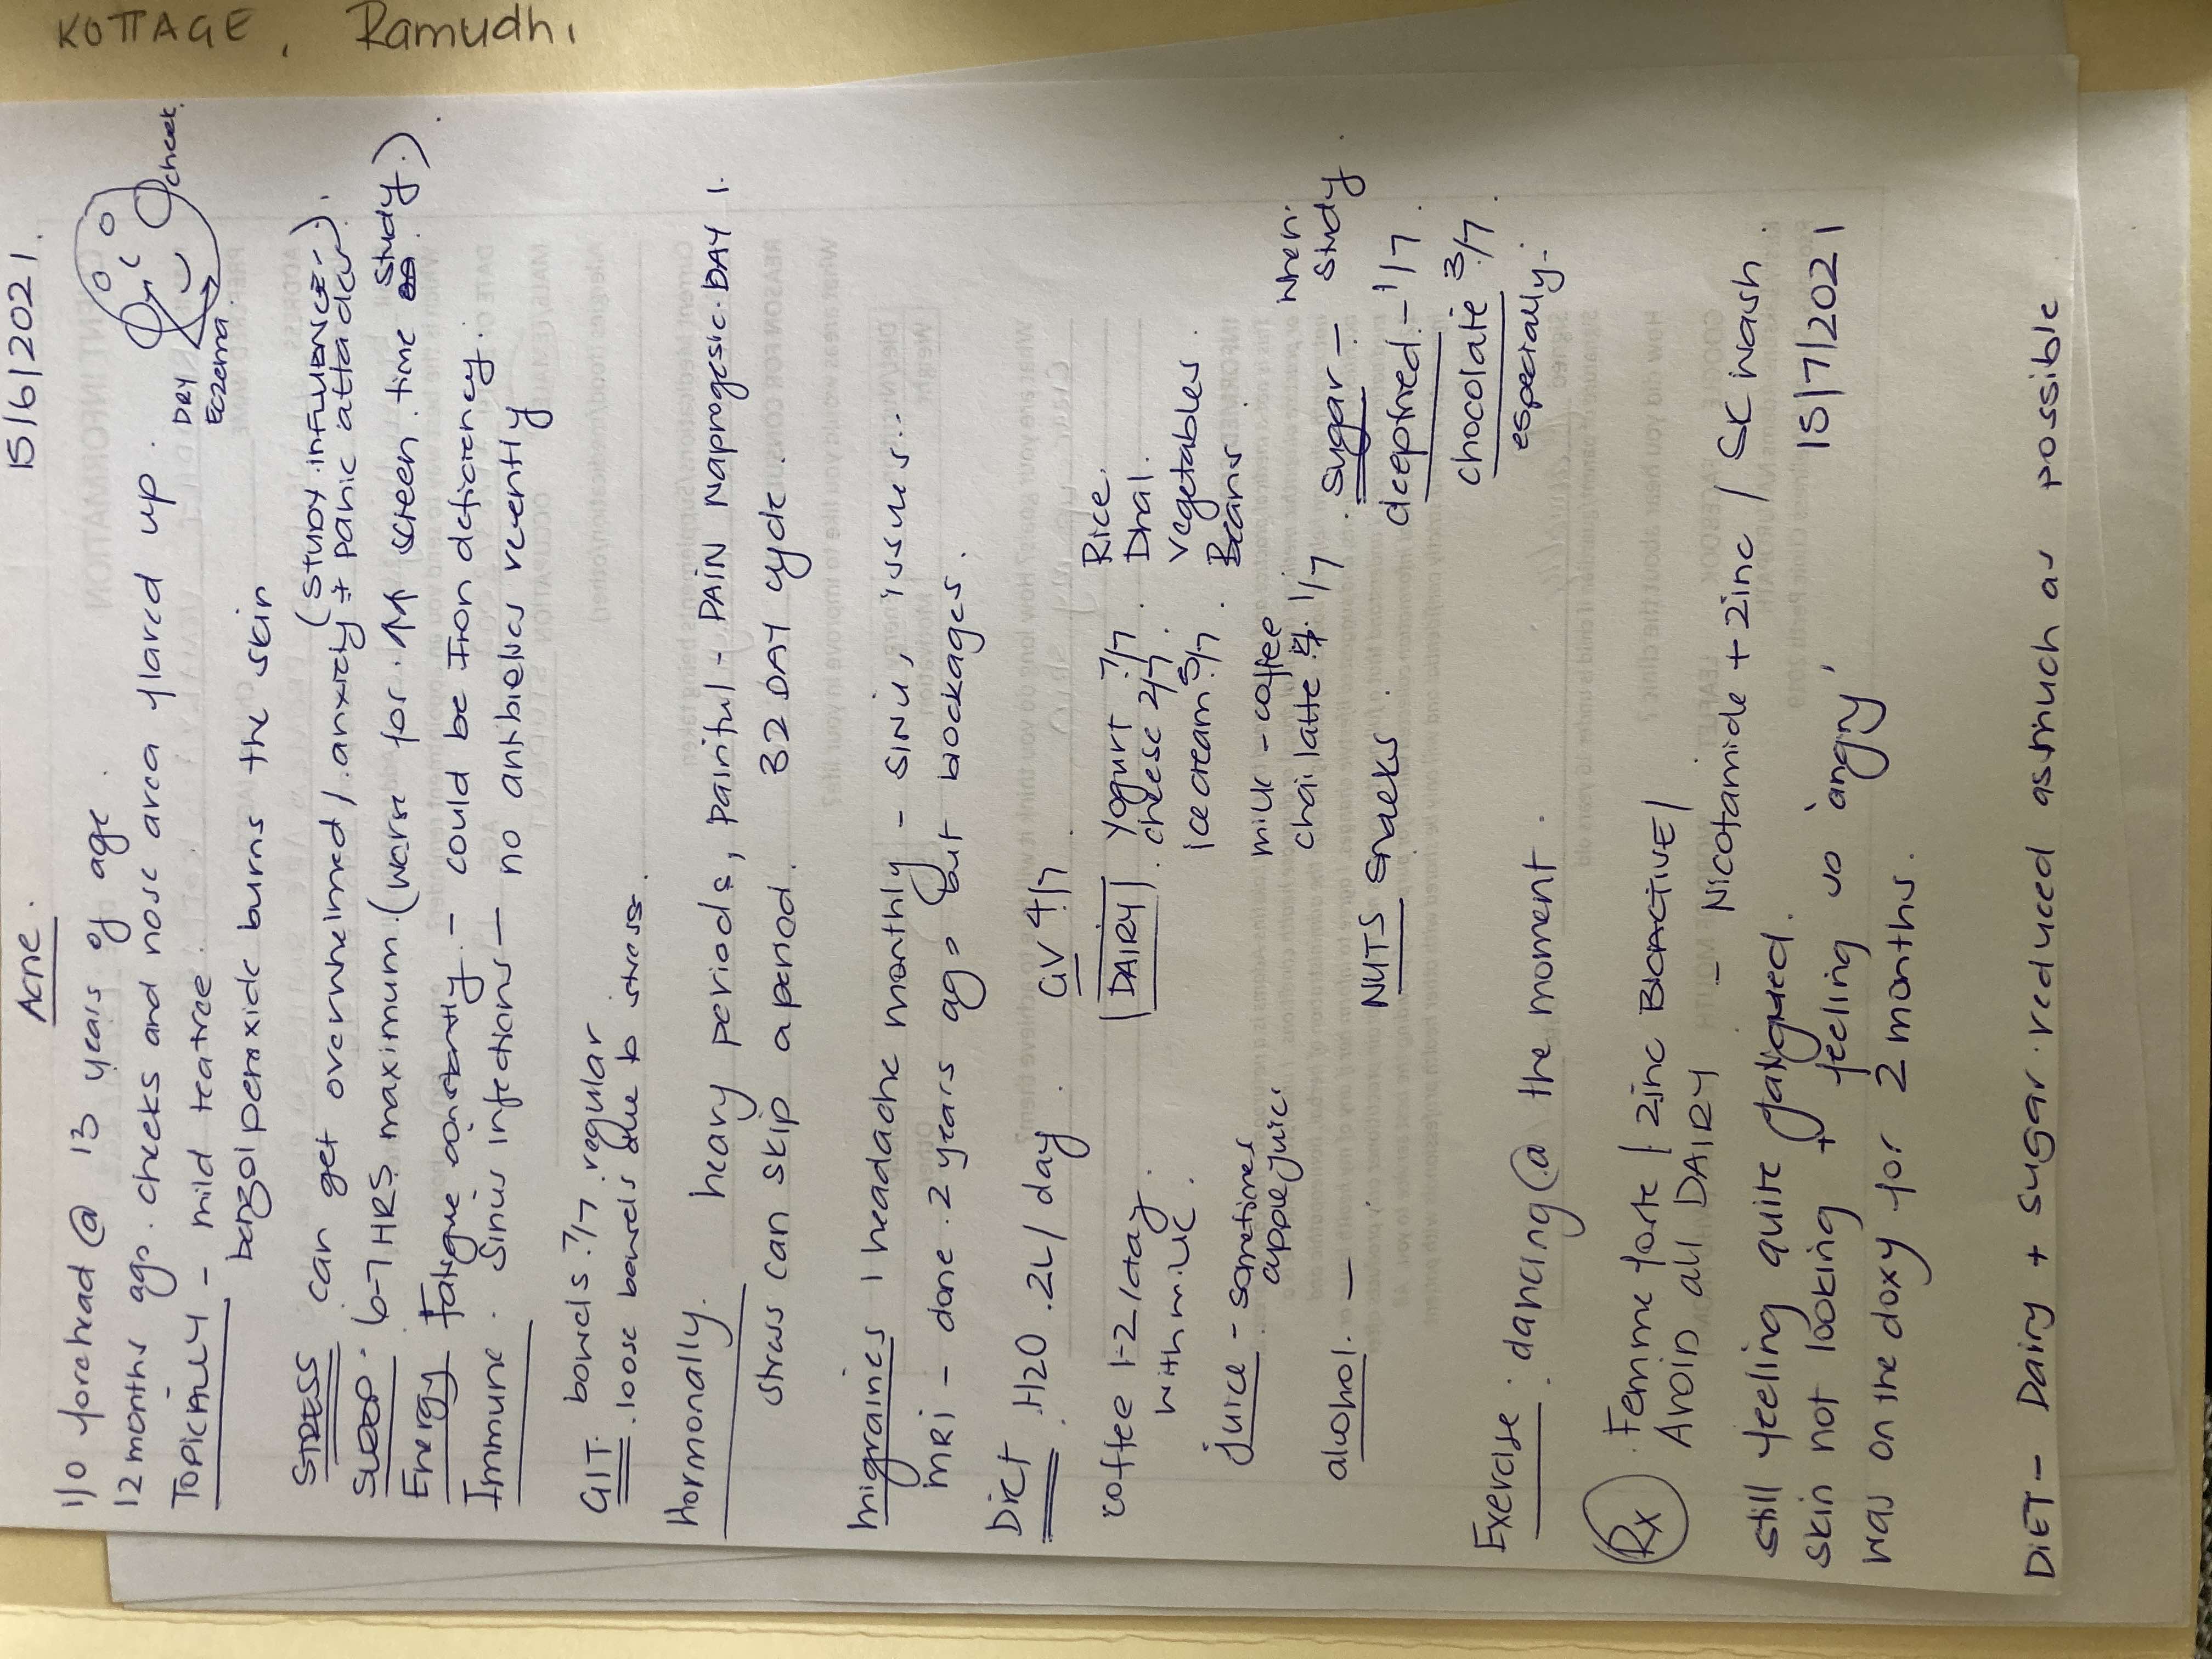 KOTTAGE, Ramudhi
15/6/2021.
Acne.
1/0 forehead @ 13 years of age.
12 months ago. cheeks and nose area flared up.
DRY
Eczema.
cheek.
TOPICALLY - mild teatree.
benzolperoxide burns the skin
STRESS can get overwhelmed / anxiety (STUDY. influences.).
+ panic attacks
SLEEP. 6-7 HRS maximum. (worse for. ↑↑ screen time study.)
Energy Fatigue constantly - could be Iron deficiency.
Immune. Sinus infections - no antibiotics recently
GIT. bowels 7/7 regular
loose bowels due to stress.
hormonally. heavy periods, painful - PAIN Naprogesic. DAY 1.
stress can skip a period. 32 DAY cycle.
migraines 1 headache monthly - sinus issues..
MRI - done. 2 years ago but blockages.
Diet. H2O. 2L/day. GV 4/7
coffee 1-2/day.
with milk.
DAIRY. yogurt 7/7.
cheese 2/7.
ice cream 3/7.
milk - coffee
chai latte 1/7
Rice.
Dhal.
Vegetables.
Beans.
juice - sometimes
apple juice
alcohol. —
NUTS snacks.
sugar - when study.
deepfried. - 1/7.
chocolate 3/7.
especially.
Exercise: dancing @ the moment.
Rx. Femme forte / zinc BIOACTIVE /
AVOID all DAIRY - Nicotamide + zinc / SK wash.
15/7/2021
still feeling quite fatigued.
skin not looking + feeling so 'angry'
was on the doxy for 2 months.
DIET - Dairy + sugar reduced asmuch as possible